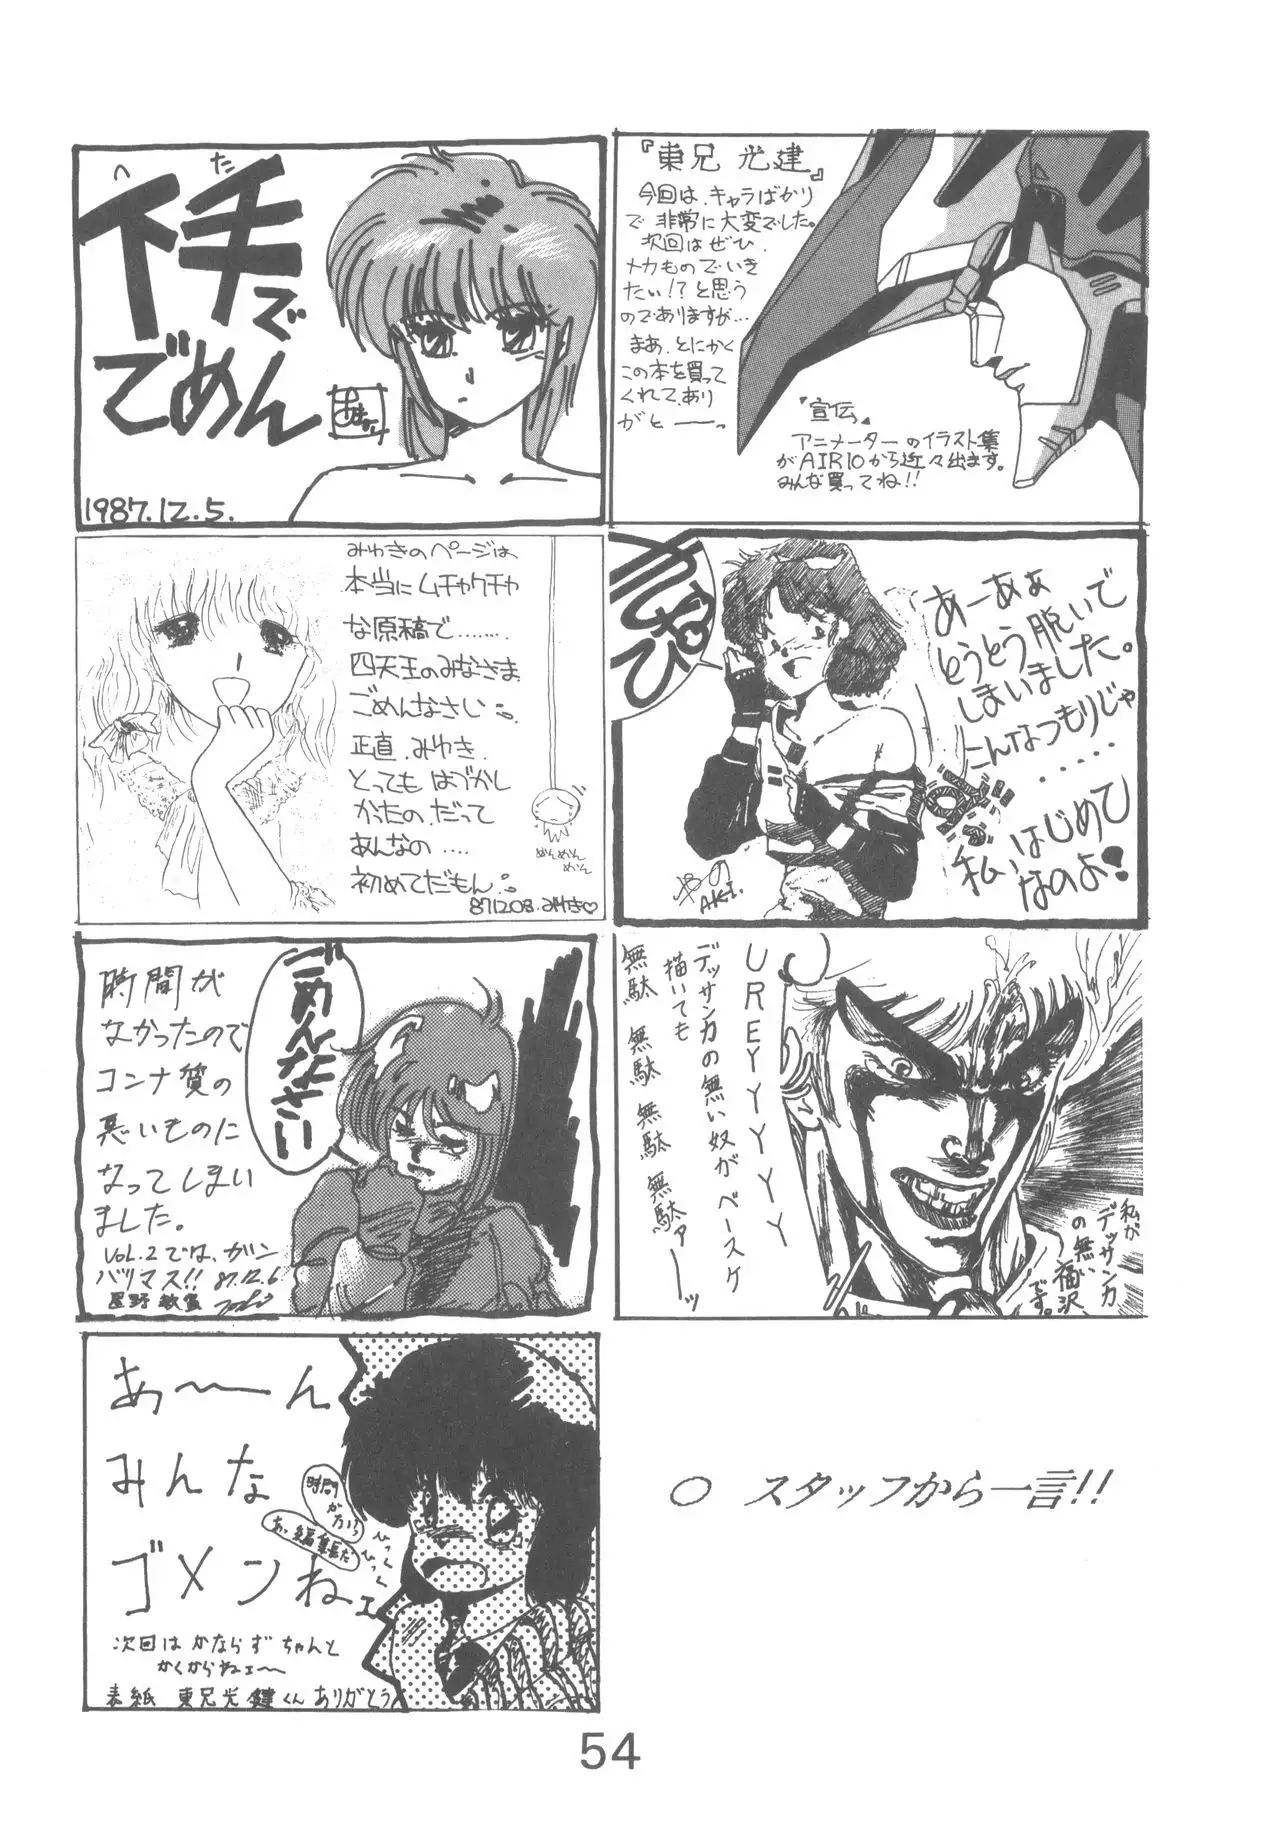 へ　た
イチで
でめん
1987.12.5.
『東兄 光建』
今回は、キャラばかり
で 非常に大変でした。
次回はぜひ、
メカものでいき
たい!?と思う
のでありますが…
まあ、とにかく
この本を買って
くれて、あり
がと――っ
『宣伝』
アニメーターのイラスト集
がAIR10から近々出ます。
みんな買ってね!!
みゆきのページは
本当にムチャクチャ
な原稿で………
四天王のみなさま
ごめんなさい
正直、みゆき、
とっても はづかし
かったの、だって
あんなの ….
初めてだもん
めんめん
めん
871208. みゆき♡
きゃぴ
あーあぁ
とうとう脱いで
しまいました。
こんなつもりじゃ
・・・・・
私、はじめて
なのよ!
AKI.
時間が
なかったので
コンナ質の
悪いものに
なってしまい
ました。
VOL.2では、ガン
バリマス!! 87.12.6
星野
ごめんなさい
UREYYYYYY
デッサン力の無い奴がベースケ
描いても
無駄 無駄 無駄 無駄ァーッ
私が
デッサン力
の無い
福沢
です。
あ〜〜ん
みんな
ゴメンねェ
時間
が
ないよ
あ、編集長だ
びっく
びっく
次回は かならず ちゃんと
かくからねェ〜
表紙 東兄光鍵くん ありがとう
○ スタッフから一言!!
54